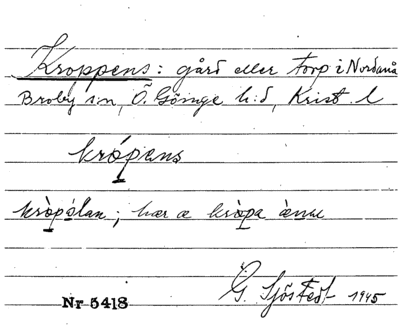 Kroppens: gård eller torp i Nordanå
Broby sn, Ö. Göinge h:d, Krist. l
krópens
kròpólan; hær æ kròpa ànu
G. Sjöstedt 1945
Nr 5418